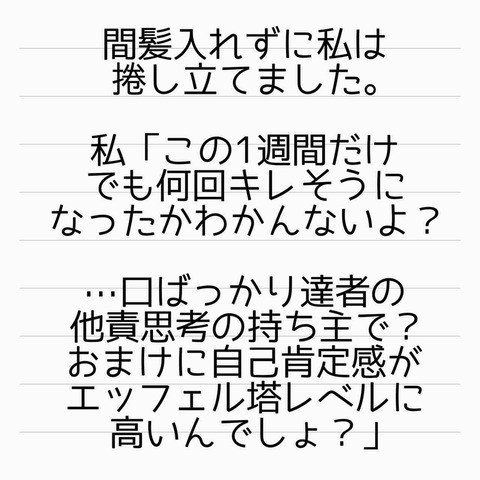 間髪入れずに私は
捲し立てました。
私「この1週間だけ
でも何回キレそうに
なったかわかんないよ？
…口ばっかり達者の
他責思考の持ち主で？
おまけに自己肯定感が
エッフェル塔レベルに
高いんでしょ？」